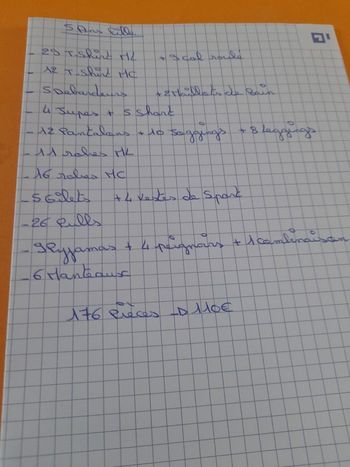 5 Ans Fille
- 29 T.Shirt ML + 9 col roulé
- 12 T.Shirt MC
- 5 Debardeurs + 2 Maillots de Bain
- 4 Jupes + 5 Short
- 12 Pantalons + 10 Joggings + 8 Leggings
- 11 robes ML
- 16 robes MC
- 5 Gilets + 4 vestes de Sport
- 26 Pulls
- 9 Pyjamas + 4 peignoirs + 1 combinaison
- 6 Manteaux
176 Pièces → 110€